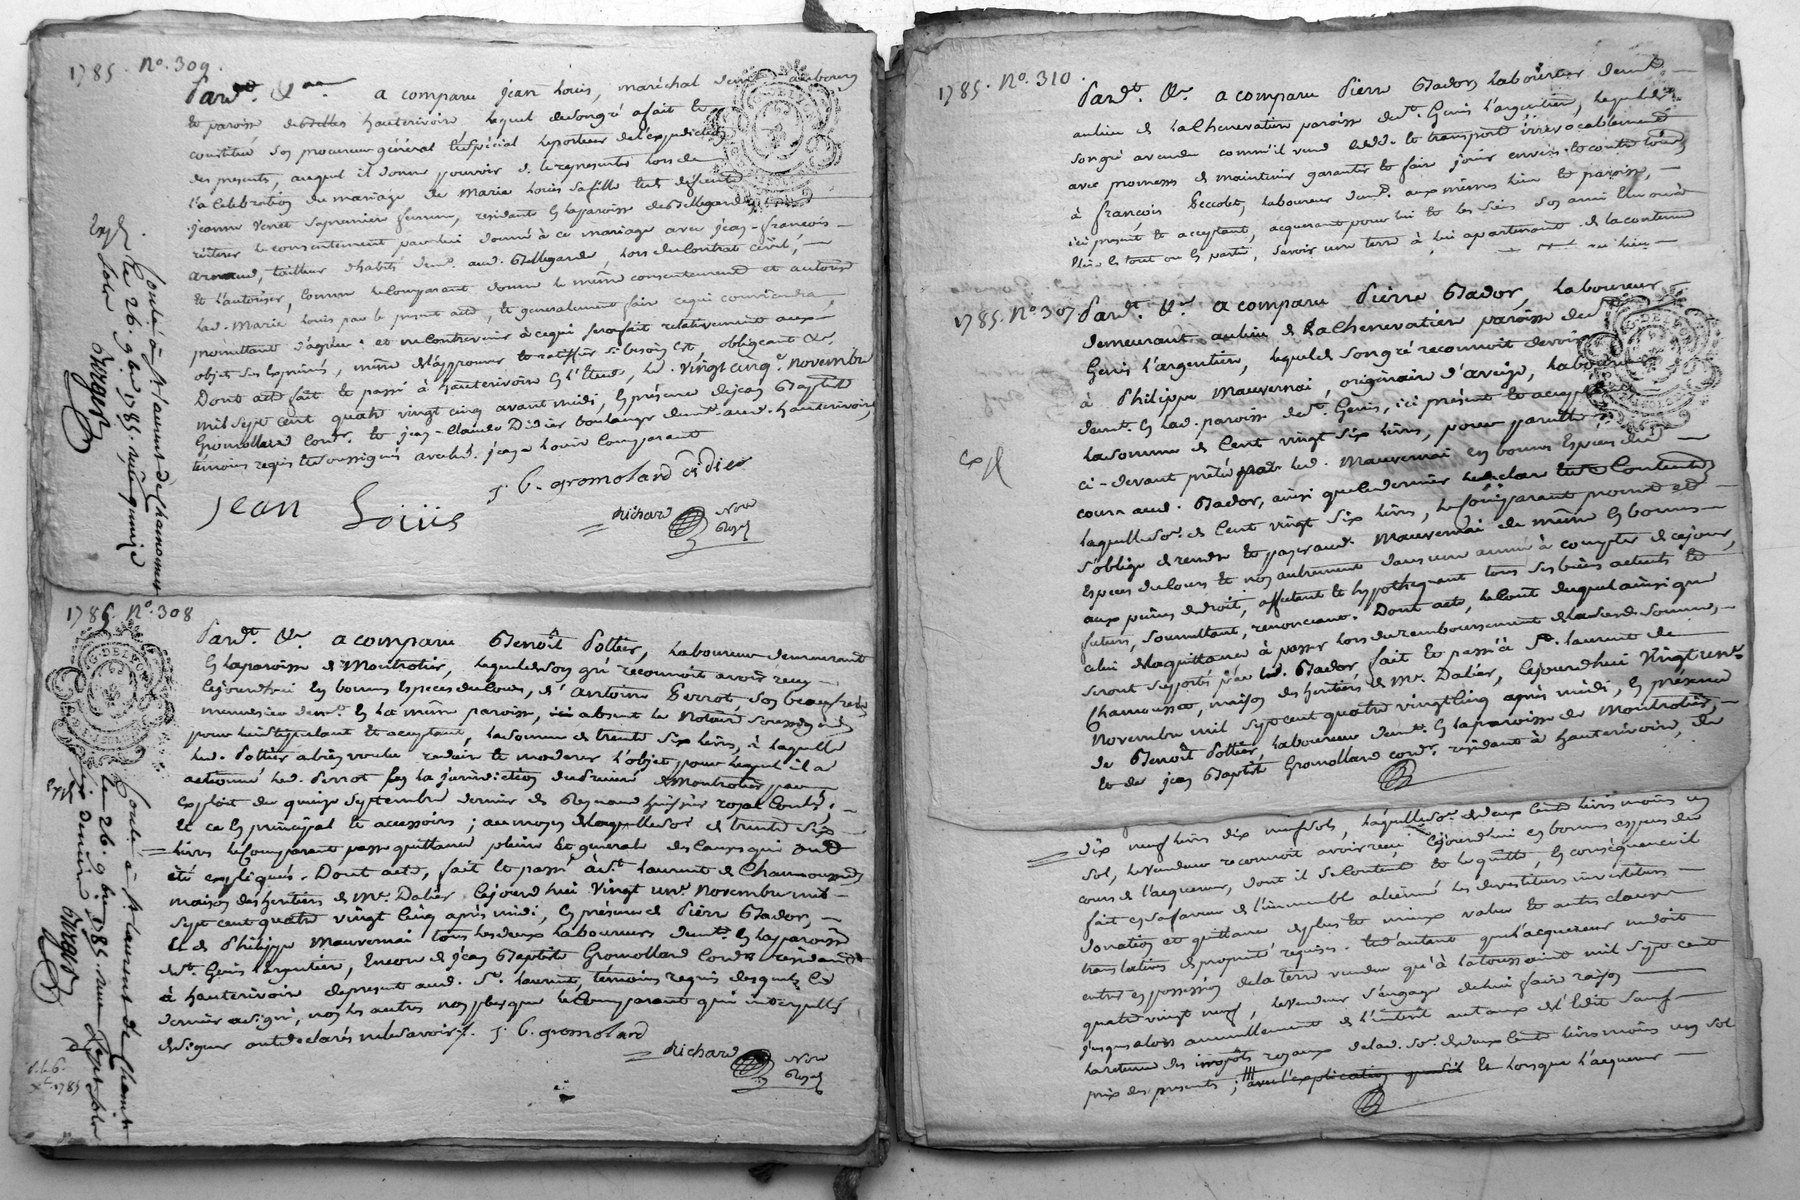 1785. N.º 309.
Pard.t &.a a comparu Jean Louis, maréchal dem.t au bourg
et paroisse de Belles hauterivoire lequel de son gré a fait et
constitué son procureur général et spécial le porteur de l'expedition
des presents, auquel il donne pouvoir de le representer lors de
la Celebration du mariage de Marie Louis sa fille et de defunte
Jeanne Venet sa premiere femme, residante en la paroisse de Bellegarde,
réiterer le consentement par lui donné à ce mariage avec Jean-françois
Arnaud, tailleur d'habits dem.t aud. Bellegarde, lors du Contrat civil,
et l'autoriser, comme le Comparant donne le même consentement et autorise
lad. Marie Louis par le present acte, et generalement faire ce qui conviendra,
promettant d'agréer et ne contrevenir à ce qui sera fait relativement aux
objets exprimés, même d'approuver et ratiffier si besoin est obligeant &.
Dont acte fait et passé à hauterivoire en l'Etude, le vingt cinq novembre
mil sept cent quatre vingt cinq avant midi, en présence de Jean Baptiste
Gromollard cord.r et Jean-Claude Didier boulanger dem.t aud. hauterivoire,
témoins requis et soussignés avec led. Jean Louis Comparant
Jean Louis J. B. gromolard C. didier
Richard Not.re Royal
Controlé à St. laurent de Chamousset
le 26. 9bre 1785. reçu quinze
sols
1785. N.º 308
Pard.t &.a a comparu Benoît Pottier, laboureur demeurant
en la paroisse de Montrotier, lequel de son gré reconnoit avoir reçu
cejourdhui en bonnes especes du Cours, d'Antoine Perrot, son beaufrère
menuisier dem.t en la même paroisse, absent le Notaire soussigné
pour lui stipulant et acceptant, la somme de trente six livres, à laquelle
led. Pottier a bien voulu reduire et moderer l'objet pour lequel il a
actionné led. Perrot en la jurisdiction du Prieuré de Montrotier par
exploit du quinze septembre dernier de Reynaud huissier royal Controlé,
et ce en principal et accessoirs; au moyen de laquelle so.e de trente six
livres le Comparant passe quittance pleine et generale des causes qui ont
été expliqués. Dont acte, fait et passé à St. laurent de Chamousset
maison des heritiers de Mr. Dalier cejourdhui vingt un.e Novembre mil
sept cent quatre vingt cinq après midi, en présence de Pierre Bador,
et de Philippe Mauvernai tous les deux laboureurs dem.t en la paroisse
de St. Genis l'argentiere, Encore de Jean Baptiste Gromollard Cord.r résidant
à hauterivoire de present aud. St. laurent, témoins requis desquels ce
dernier a signé, non les autres non plus que le Comparant qui interpellés
de signer ont déclaré ne le savoir. J. B. gromolard
Richard Not.re Royal
Controlé à St. laurent de Chamousset
le 26. 9bre 1785. reçu
1785. N.º 310.
Pard.t &.a a comparu Pierre Bador laboureur dem.t
au lieu de la Chenevatiere paroisse de St. Genis l'argentiere, lequel de
son gré a vendu comme il vend cede et transporte irrévocablement
avec promesses de maintenir garantir et faire jouir envers et contre tous,
à françois Peccolet, laboureur dem.t aux mêmes lieu et paroisse,
ici présent et acceptant, acquerant pour lui et les siens son ami elu ou à
elire en tout ou en partie, savoir une terre à lui apartenant de la contenue
1785. N.º 307
Pard.t &.a a comparu Pierre Bador, laboureur
demeurant au lieu de la Chenevatiere paroisse de St.
Genis l'argentiere, lequel de son gré reconnoit devoir
à Philippe Mauvernai, originaire d'aveize, laboureur
dem.t en lad. paroisse de St. Genis, ici présent et acceptant
la somme de Cent vingt six livres, pour pareille
ci-devant prêtée par led. Mauvernai en bonnes Especes du
cours aud. Bador, ainsi que le dernier le declare et s'en Contente
laquelle so.e de Cent vingt six livres, le Comparant promet et
s'oblige de rendre et payer aud. Mauvernai de même en bonnes
Especes du Cours et non autrement dans une année à compter de cejour,
aux peines de droit, affectant et hypothequant tous ses biens actuels et
futurs, soumettant, renonceant. Dont acte, le cout duquel ainsi que
celui de la quittance à passer lors du remboursement de lad. somme,
seront supportés par led. Bador fait et passé à St. laurent de
Chamousset, maison des heritiers de Mr. Dalier, cejourdhui vingt un.e
Novembre mil sept cent quatre vingt cinq après midi, en présence
de Benoît Pottier laboureur dem.t en la paroisse de Montrotier,
et de Jean Baptiste Gromollard cord.r résidant à hauterivoire, de
dix neuf livres dix neuf sols, laquelle so.e de deux cents livres moins un
sol, le vendeur reconnoit avoir reçu cejourdhui en bonnes especes du
cours de l'acquereur, dont il se Contente et le quitte, en consequence il
fait en sa faveur de l'immeuble aliené les devestitures investitures
donation et quittance de plus et mieux value et autres clauses
translatives de propriété requises. et d'autant que l'acquereur ne doit
entrer en possession de la terre vendue qu'à la toussaint mil sept cent
quatre vingt neuf, le vendeur s'engage de lui faire raison
jusques alors annuellement de l'interet au taux de l'Edit sauf
la retenue des impôts royaux de lad. so.e de deux Cents livres moins un sol
prix des presents; avec l'explication que s'il Et lorsque l'acquereur